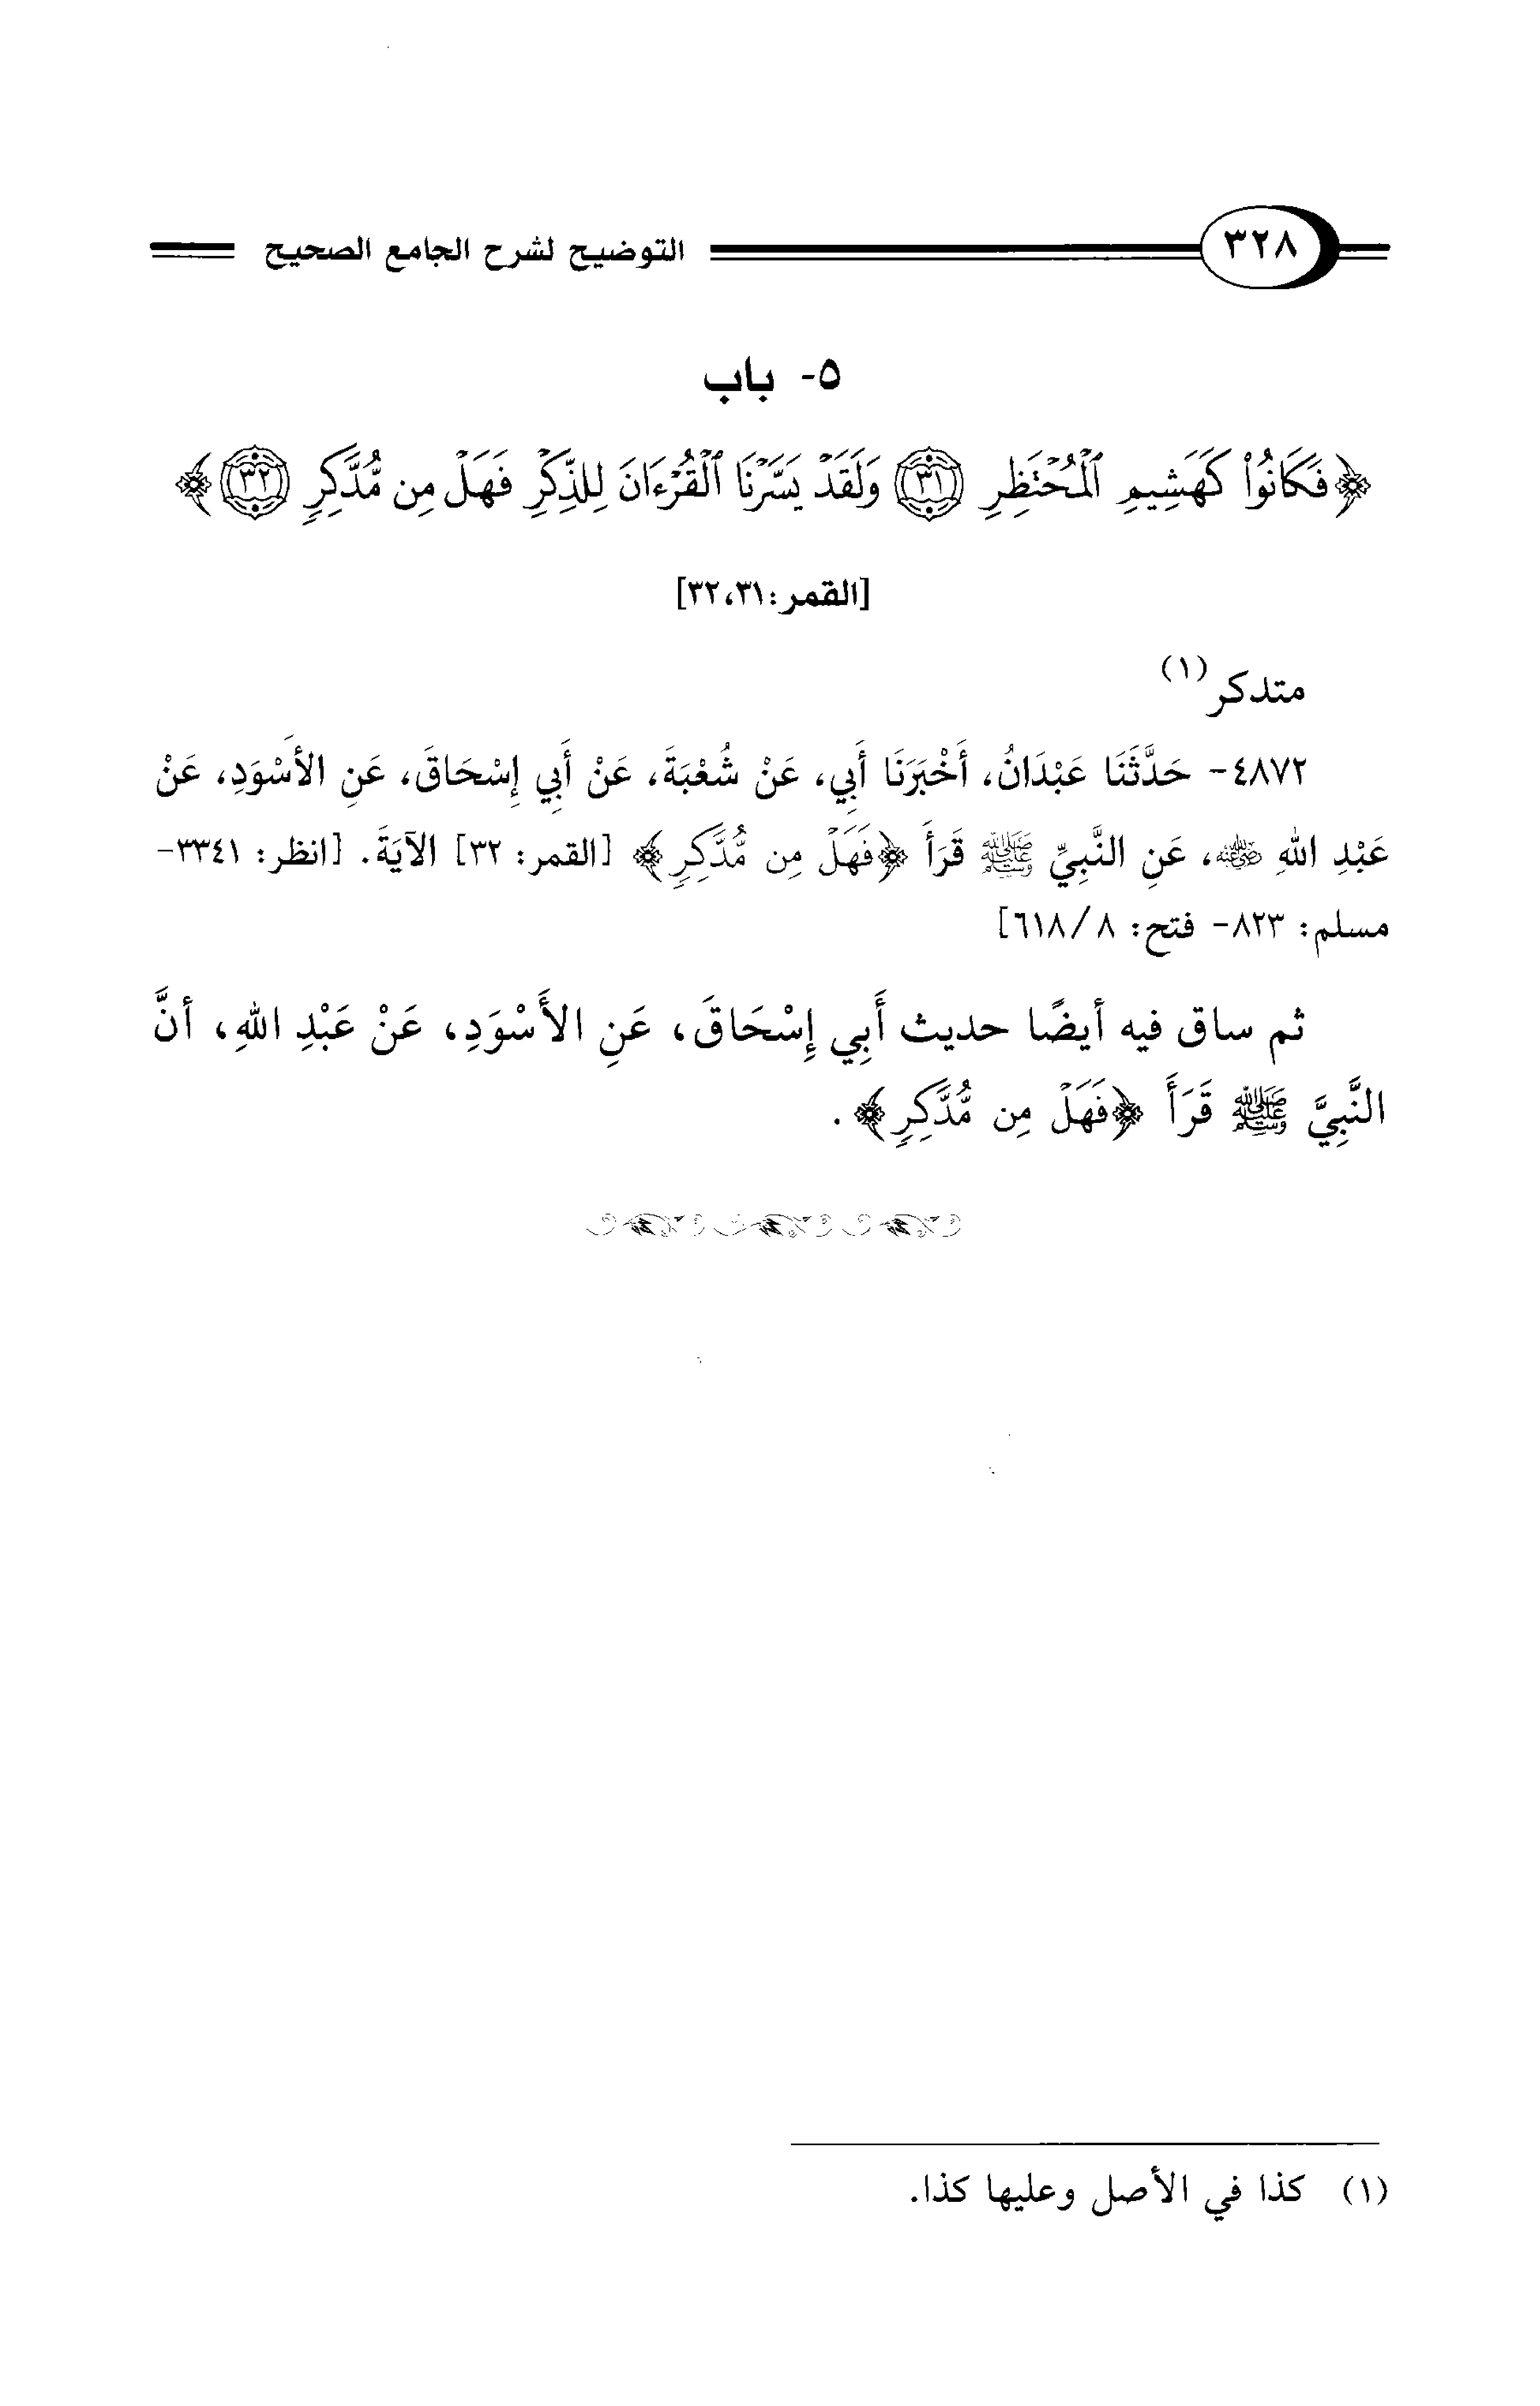 ٣٢٨ التوضيح لشرح الجامع الصحيح
٥- باب
﴿فَكَانُوا۟ كَهَشِيمِ ٱلْمُحْتَظِرِ ٣١ وَلَقَدْ يَسَّرْنَا ٱلْقُرْءَانَ لِلذِّكْرِ فَهَلْ مِن مُّدَّكِرٍ ٣٢﴾
[القمر: ٣١، ٣٢]
متدكر (١)
٤٨٧٢- حَدَّثَنَا عَبْدَانُ، أَخْبَرَنَا أَبِي، عَنْ شُعْبَةَ، عَنْ أَبِي إِسْحَاقَ، عَنِ الأَسْوَدِ، عَنْ
عَبْدِ اللهِ رضي الله عنه، عَنِ النَّبِيِّ ﷺ قَرَأَ ﴿فَهَلْ مِن مُّدَّكِرٍ﴾ [القمر: ٣٢] الآيَةَ. [انظر: ٣٣٤١-
مسلم: ٨٢٣- فتح: ٨/ ٦١٨]
ثم ساق فيه أيضًا حديث أَبِي إِسْحَاقَ، عَنِ الأَسْوَدِ، عَنْ عَبْدِ اللهِ، أنَّ
النَّبِيَّ ﷺ قَرَأَ ﴿فَهَلْ مِن مُّدَّكِرٍ﴾.
(١) كذا في الأصل وعليها كذا.